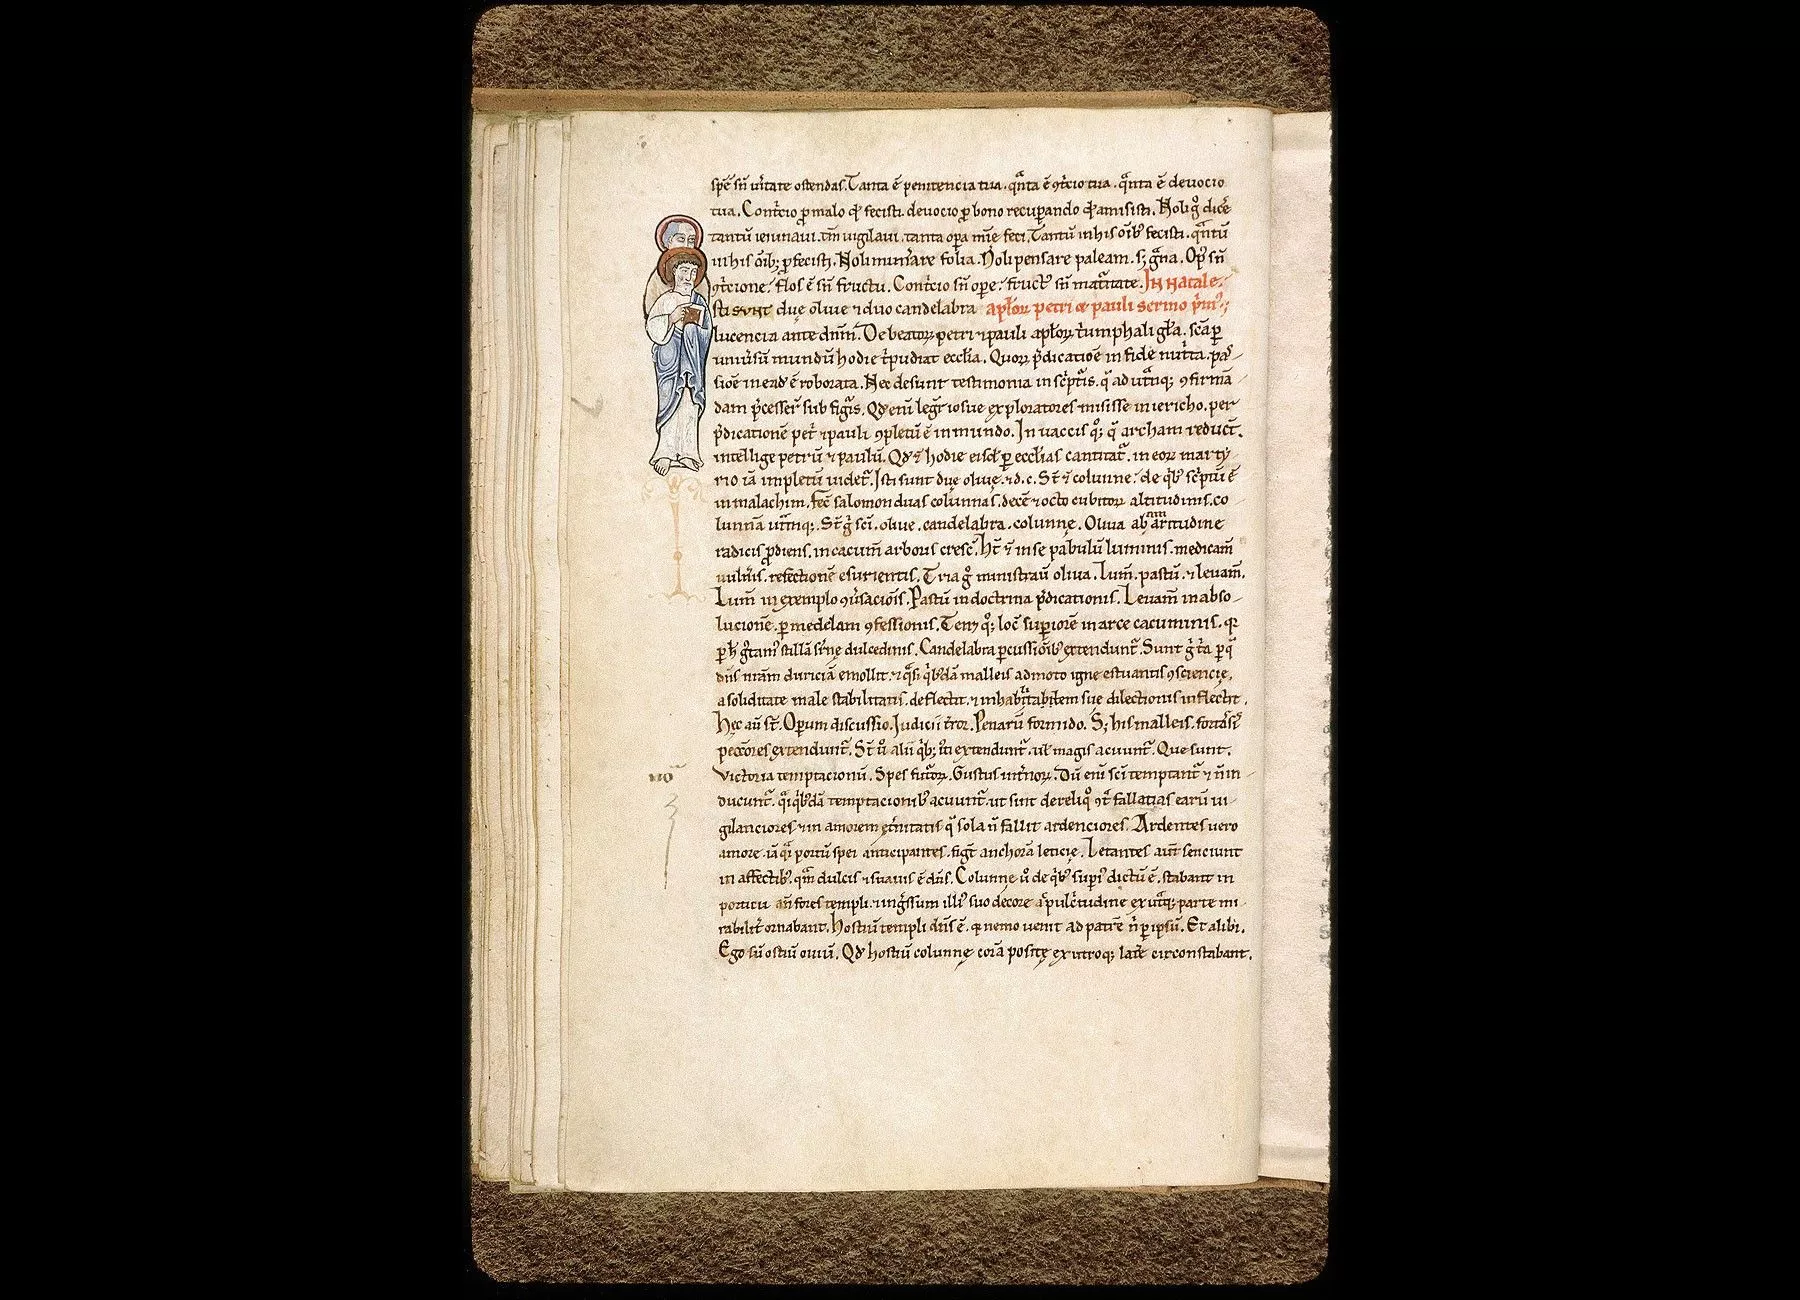 spē sn̄ ū̔itate ostendas. Tanta ē penitencia tua. qn̄ta ē ꝯt̔cio tua. qn̄ta ē deuocio
tua. Cont̔cio ꝓ malo qđ fecisti. deuocio ꝓ bono recuꝑando qđ amisisti. Noli gͦ dice̔
tantū ieiunaui. tm̄ uigilaui. tanta oꝑa mīe feci. Tantū in his oīb; fecisti. qn̄tū
in his oīb; ꝓfecisti. Noli num̔are folia. Noli pensare paleam. s; gͣna. Op̄ sn̄
ꝯt̔cione. flos ē sn̄ fructu. Cont̔cio sn̄ oꝑe. fruct᷒ sn̄ matͣitate. In natale.
sti sunt duę oliuę ⁊ duo candelabra apl̄oꝝ petri et pauli sermo p̔m᷒.;
lucencia ante dn̄m. De beatoꝝ petri ⁊ pauli apl̄oꝝ t̔umphali gl̄a. sc̄a ꝑ
uniu̔sū mundū hodie t̔pudiat eccl̄ia. Quoꝝ p̄dicatiōe in fide nut̔ta. pas-
siōe in eađ ē roborata. Nec desunt testimonia in sc̔pt̔is. qͣ ad utͣq; ꝯfirmā-
dam p̄cesser̄ sub fig̔is. Qđ enī legit̔ iosue exploratores misisse in iericho. per
p̄dicationē pet̔ ⁊ pauli ꝯpletū ē in mundo. In uaccis qͦ; qͣ archam reduct̄.
intellige petrū ⁊ paulū. Qđ ⁊ hodie eisđ ꝑ eccl̄ias cantitat̔. in eoꝝ marty-
rio iā impletū uidet̔. Isti sunt duę oliuę. ⁊ d. c. St̄ ⁊ colunne. de qͥb᷒ sc̔ptū ē
in malachim. Fec̄ salomon duas colunnas. decē ⁊ octo cubitoꝝ altitudinis. co-
lunnā utͣmq;. St̄ gͦ sc̄i. oliue. candelabra. colunnę. Oliua ab amaritudine
radicis ꝓdiens. in cacum̄ arboris cresc̄. Ht̄ ⁊ in se pabulū luminis. medicam̄
uuln̔is. refectionē esurientis. Tria gͦ ministrat̄ oliua. Lum̄. pastū. ⁊ leuam̄.
Lum̄ in exemplo ꝯu̔sacōis. Pastū in doctrina p̄dicationis. Leuam̄ in abso-
lucionē. ꝑ medelam ꝯfessionis. Tenꝫ qͦ; locū suꝑiorē in arce cacuminis. qꝫ
ꝑ h̄ gͣtam̔ stillā su̔nę dulcedinis. Candelabra ꝑcussiōib᷒ extendunt̔. Sunt gͥta ꝑ qͣ
dn̄s nr̄am duriciā emollit. ⁊ qͣs; qͥb᷒dā malleis admoto igne estuantis ꝯsciencię.
a soliditate male stabilitatis. deflectit. ⁊ inhabitabilem sue dilectionis inflectit.
Hęc aū st̄. Oꝑum discussio. Judicii t̔ror. Penarū formido. S; his malleis. fortass̔
peccōres extendunt̔. St̄ ū̊ alii qͥb; sc̄i extendunt̔. ul̄ magis acuunt̔. Que sunt.
Victoria temptacionū. Spes futoꝝ. Gustus int̔noꝝ. Dū enī sc̄i temptant̔ ⁊ n̄ in-
ducunt̔. qͣi qͥb᷒dā temptacionib᷒ acuunt̔. ut sint de reliqͦ ꝯt̔ fallatias earū ui-
gilanciores ⁊ in amorem et̔nitatis qͣ sola n̄ fallit ardenciores. Ardentes uero
amore. iā qͣi portū spei anticipantes. figt̄ anchorā leticię. Letantes aut̄ senciunt
in affectib᷒. qͣm dulcis ⁊ suauis ē dn̄s. Colunne ū̊ de qͥb᷒ supi᷒ dictū ē. stabant in
porticu an̄ fores templi. ⁊ ing̔ssum illi᷒ suo decore a pulc̔tudine ex utͣq; parte mi-
rabilit̔ ornabant. Hostiū templi dn̄s ē. qꝫ nemo uenit ad patrē n̄ ꝑ ipsū. Et alibi.
Ego sū ostiū ouiū. Qđ hostiū colunnę corā positę ex utroq; lat̔e circonstabant.
no̅